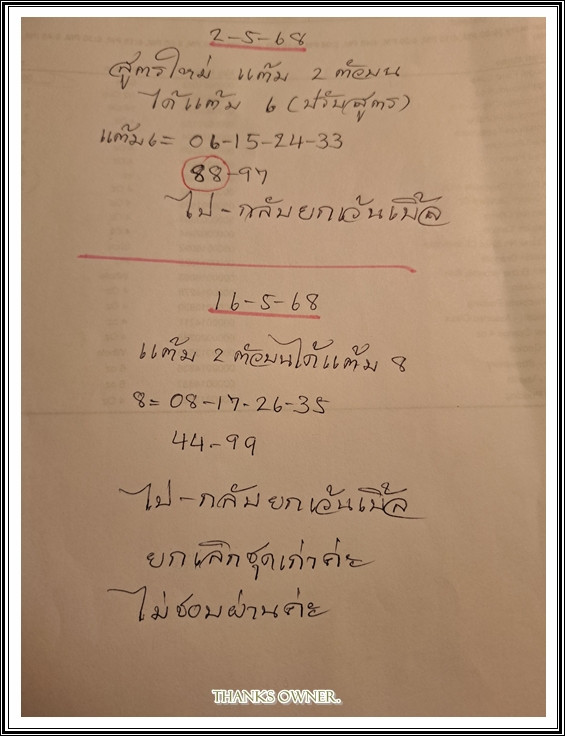 2-5-68
สูตรใหม่ แต้ม 2 ตัวบน
ได้แต้ม 6 (ปรับสูตร)
แต้ม6= 06-15-24-33
88-97
ไป-กลับยกเว้นเบิ้ล
16-5-68
แต้ม 2 ตัวบนได้แต้ม 8
8= 08-17-26-35
44-99
ไป-กลับยกเว้นเบิ้ล
ยกเลิกชุดเก่าค่ะ
ไม่ชอบผ่านค่ะ
THANKS OWNER.